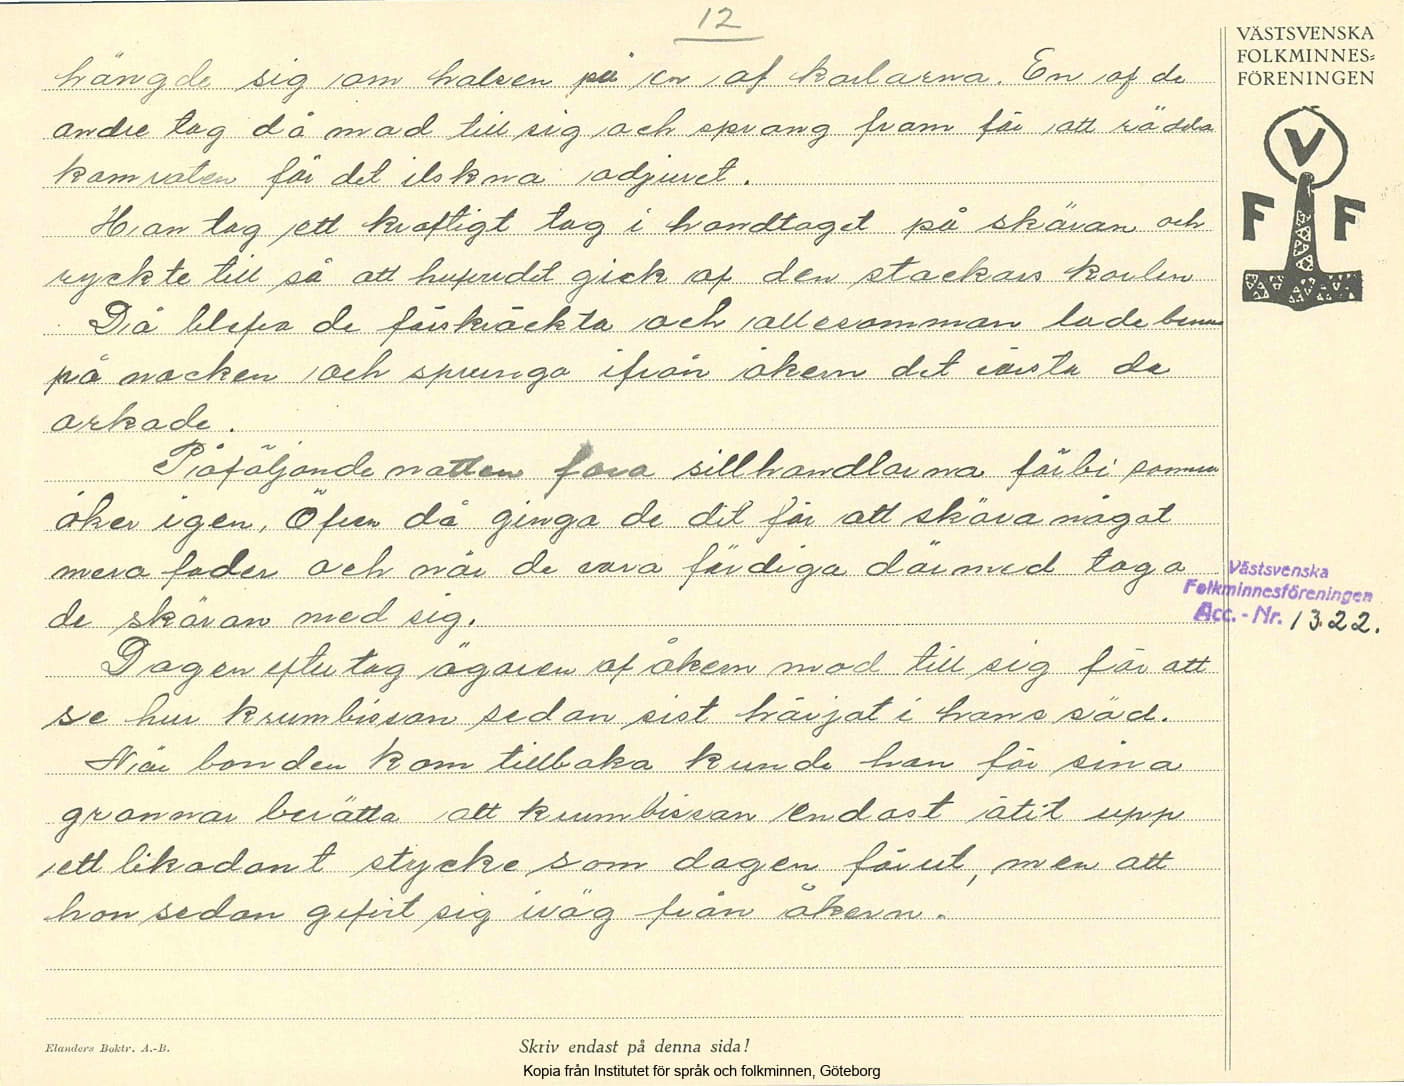 12
VÄSTSVENSKA
FOLKMINNES=
FÖRENINGEN
V
F F
hängde sig om halsen på en af karlarna. En af de
andre tog då mod till sig och sprang fram för att rädda
kamraten för det ilskna odjuret.
Han tog ett kraftigt tag i handtaget på skäran och
ryckte till så att hufvudet gick af den stackars karlen
Då blefvo de förskräckta och allesamman lade benen
på nacken och sprungo ifrån åkern det värsta de
orkade.
Påföljande natten foro sillhandlarna förbi samma
åker igen, Öfven då gingo de dit för att skära något
mera foder och när de voro färdiga därmed togo
de skäran med sig.
Dagen efter tog ägaren af åkern mod till sig för att
se hur krumbissan sedan sist härjat i hans säd.
När bonden kom tillbaka kunde han för sina
grannar berätta att krumbissan endast ätit upp
ett likadant stycke som dagen förut, men att
hon sedan gifvit sig iväg från åkern.
Västsvenska
Folkminnesföreningen
Acc.-Nr. 1322.
Elanders Boktr. A.-B.
Skriv endast på denna sida!
Kopia från Institutet för språk och folkminnen, Göteborg